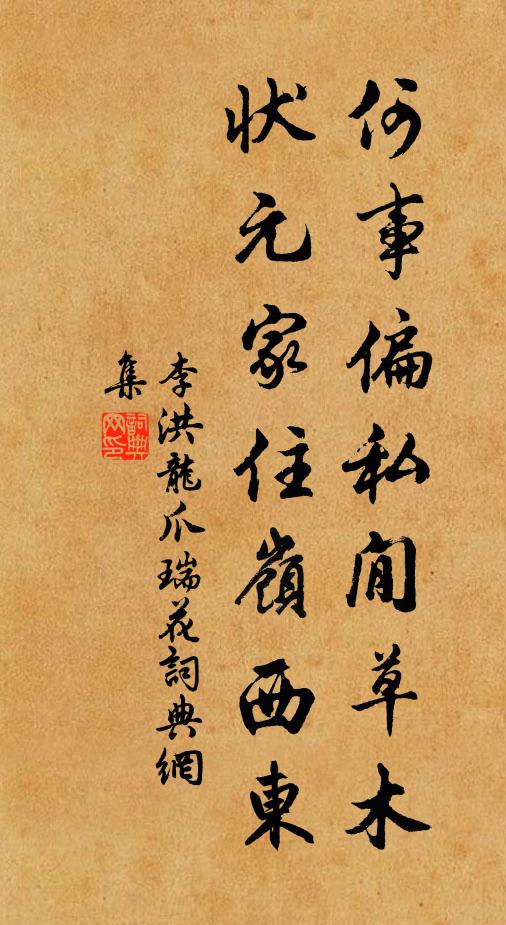 何事偏私閒草木
狀元家住嶺西東
李洪龍爪瑞花詞典網
集
詞典网印